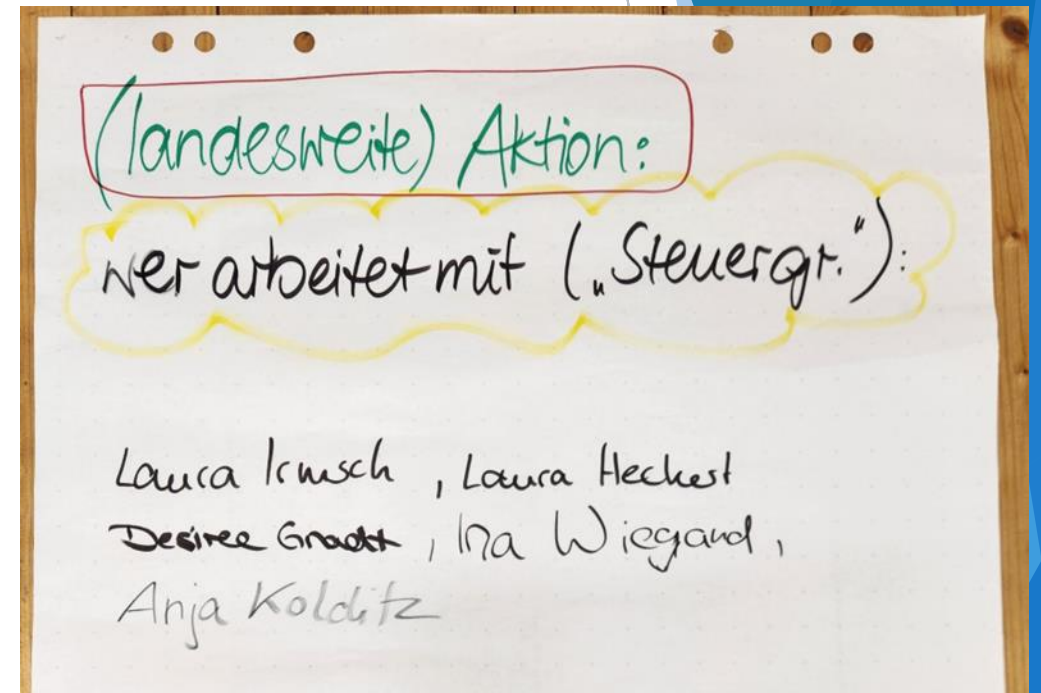 (landesweite) Aktion:
wer arbeitet mit („Steuergr.“):
Laura Irmsch, Laura Heckert
Desiree, Ina Wiegand,
Anja Kolditz